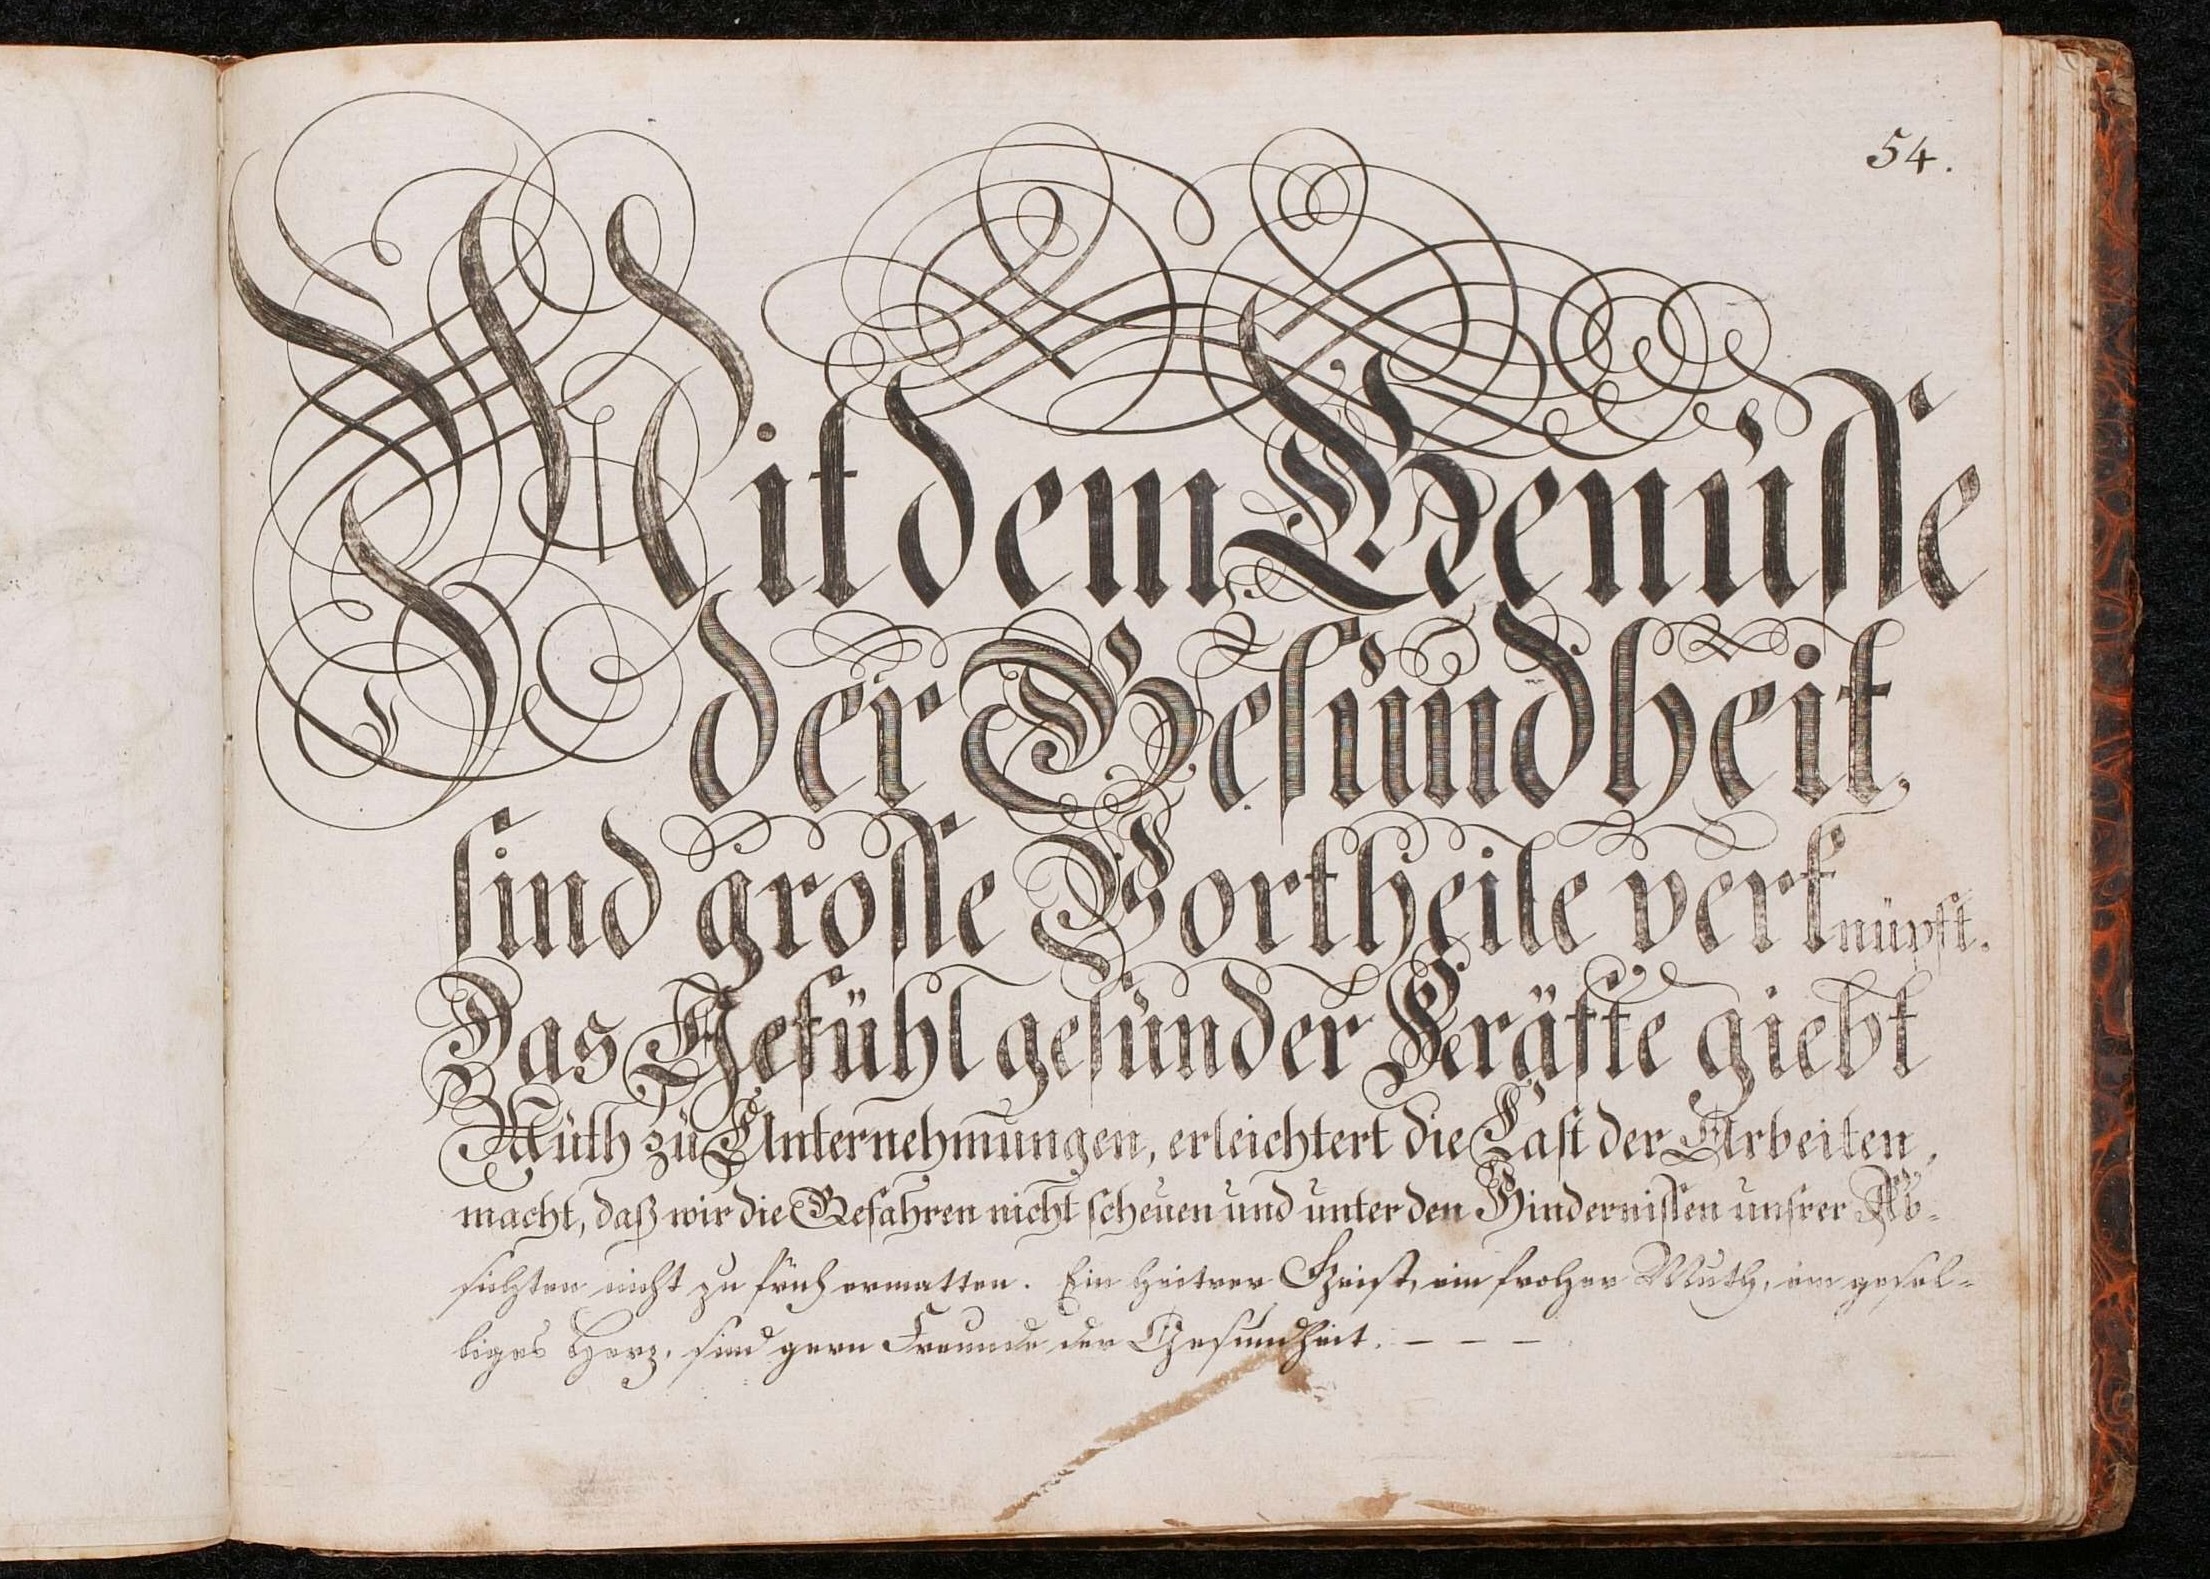 54.
Mit dem Genusse
der Gesundheit
sind grosse Vortheile verknüpft.
Das Gefühl gesunder Kräfte giebt
Muth zu Unternehmungen, erleichtert die Last der Arbeiten,
macht, daß wir die Gefahren nicht scheuen und unter den Hindernissen unsrer Ab-
sichten nicht zu früh ermatten. Ein heitrer Geist, ein froher Muth, ein gesel-
liges Herz, sind gern Freunde der Gesundheit. – – –